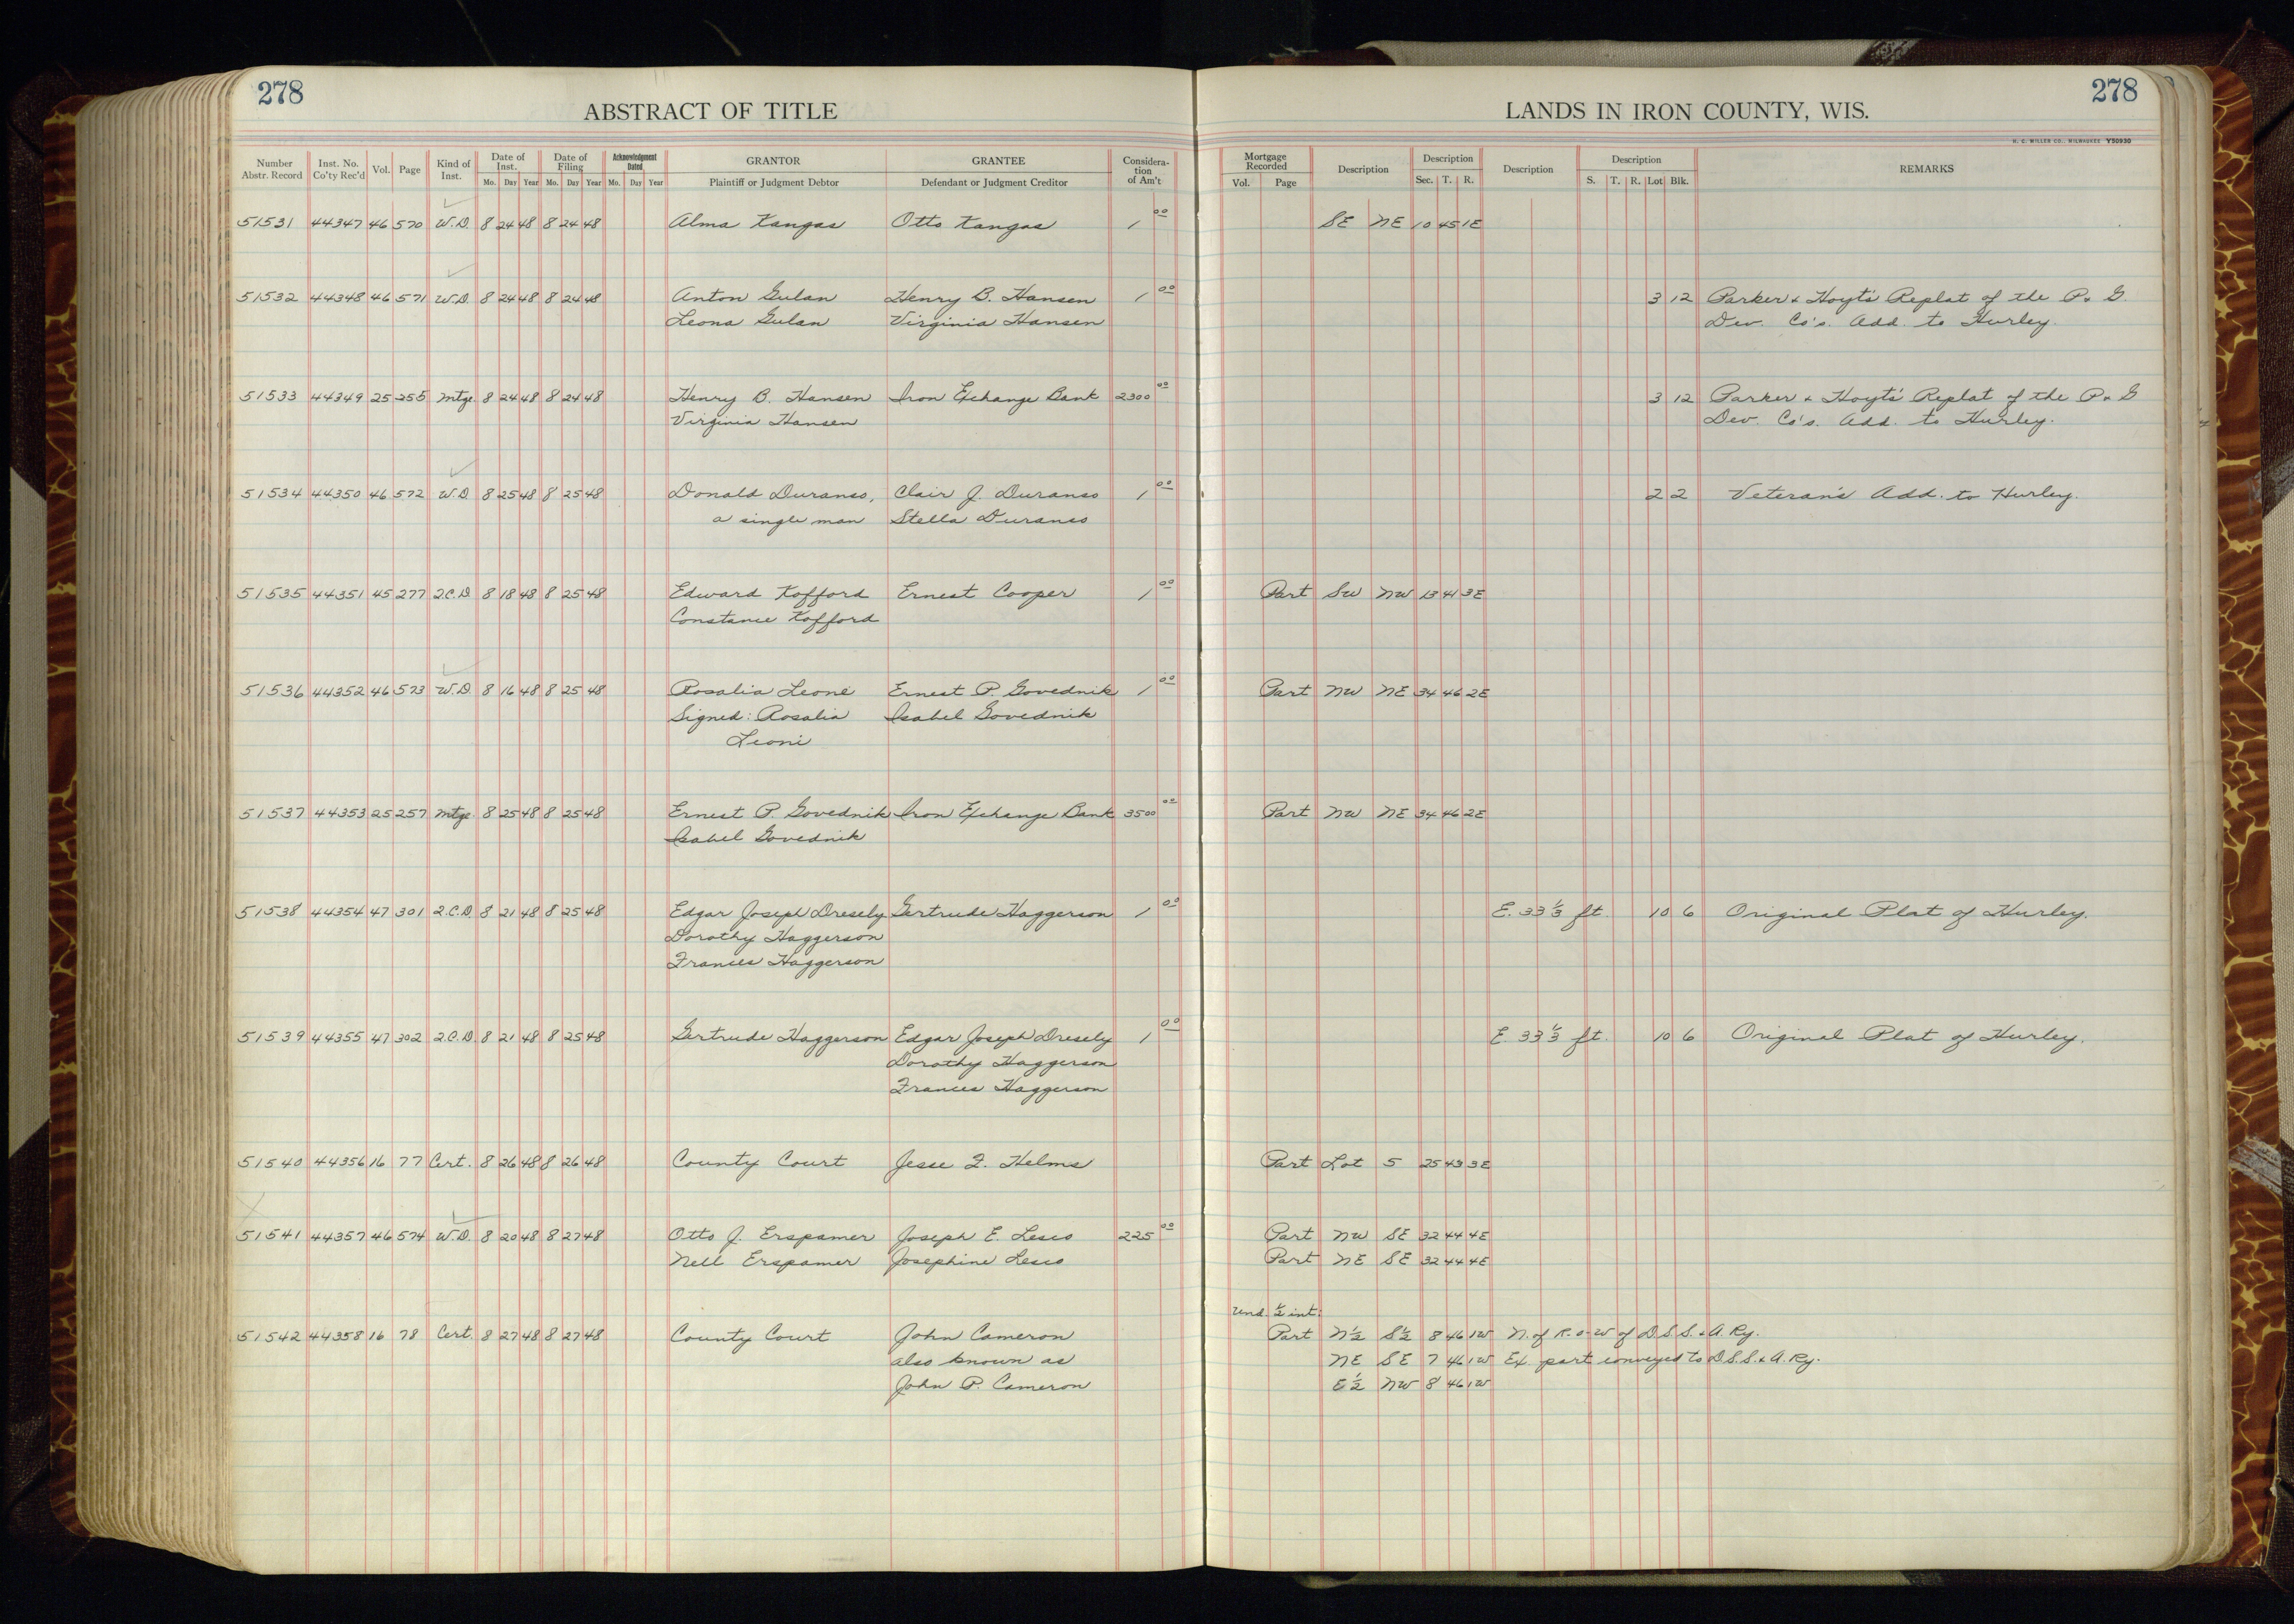 278
ABSTRACT OF TITLE
LANDS IN IRON COUNTY, WIS.
278
H. C. MILLER CO., MILWAUKEE Y50930
Number Abstr. Record Inst. No. Co'ty Rec'd Vol. Page Kind of Inst. Date of Inst. Mo. Day Year Date of Filing Mo. Day Year Acknowledgment Dated Mo. Day Year GRANTOR Plaintiff or Judgment Debtor GRANTEE Defendant or Judgment Creditor Considera-tion of Am't Mortgage Recorded Vol. Page Description Description Sec. T. R. Description Description S. T. R. Lot Blk. REMARKS
51531 44347 46 570 W.D. 8 24 48 8 24 48 Alma Kangas Otto Kangas 1 00 SE NE 10 45 1E
51532 44348 46 571 W.D. 8 24 48 8 24 48 Anton Gulan Henry B. Hansen 1 00 3 12 Parker & Hoyt's Replat of the P. & G.
Leona Gulan Virginia Hansen Dev. Co's. Add. to Hurley.
51533 44349 25 255 Mtge. 8 24 48 8 24 48 Henry B. Hansen Iron Exchange Bank 2300 00 3 12 Parker & Hoyt's Replat of the P. & G
Virginia Hansen Dev. Co's. Add. to Hurley.
51534 44350 46 572 W.D. 8 25 48 8 25 48 Donald Duranso, Clair J. Duranso 1 00 2 2 Veteran's Add. to Hurley.
a single man Stella Duranso
51535 44351 45 277 Q.C.D. 8 18 48 8 25 48 Edward Kofford Ernest Cooper 1 00 Part SW NW 13 41 3E
Constance Kofford
51536 44352 46 573 W.D. 8 16 48 8 25 48 Rosalia Leone Ernest P. Govednik 1 00 Part NW NE 34 46 2E
Signed: Rosalia Isabel Govednik
Leoni
51537 44353 25 257 Mtge. 8 25 48 8 25 48 Ernest P. Govednik Iron Exchange Bank 3500 00 Part NW NE 34 46 2E
Isabel Govednik
51538 44354 47 301 Q.C.D. 8 21 48 8 25 48 Edgar Joseph Dresely Gertrude Haggerson 1 00 E. 33 1/3 ft. 10 6 Original Plat of Hurley.
Dorothy Haggerson
Frances Haggerson
51539 44355 47 302 Q.C.D. 8 21 48 8 25 48 Gertrude Haggerson Edgar Joseph Dresely 1 00 E. 33 1/3 ft. 10 6 Original Plat of Hurley.
Dorothy Haggerson
Frances Haggerson
51540 44356 16 77 Cert. 8 26 48 8 26 48 County Court Jesse F. Helms Part Lot 5 25 43 3E
51541 44357 46 574 W.D. 8 20 48 8 27 48 Otto J. Erspamer Joseph E. Lesco 225 00 Part NW SE 32 44 4E
Nell Erspamer Josephine Lesco Part NE SE 32 44 4E
Und. 1/2 int:
51542 44358 16 78 Cert. 8 27 48 8 27 48 County Court John Cameron Part N1/2 S1/2 8 46 1W N. of R.-o-W of D.S.S. & A. Ry.
also known as NE SE 7 46 1W Ex. part conveyed to D.S.S. & A. Ry.
John P. Cameron E1/2 NW 8 46 1W